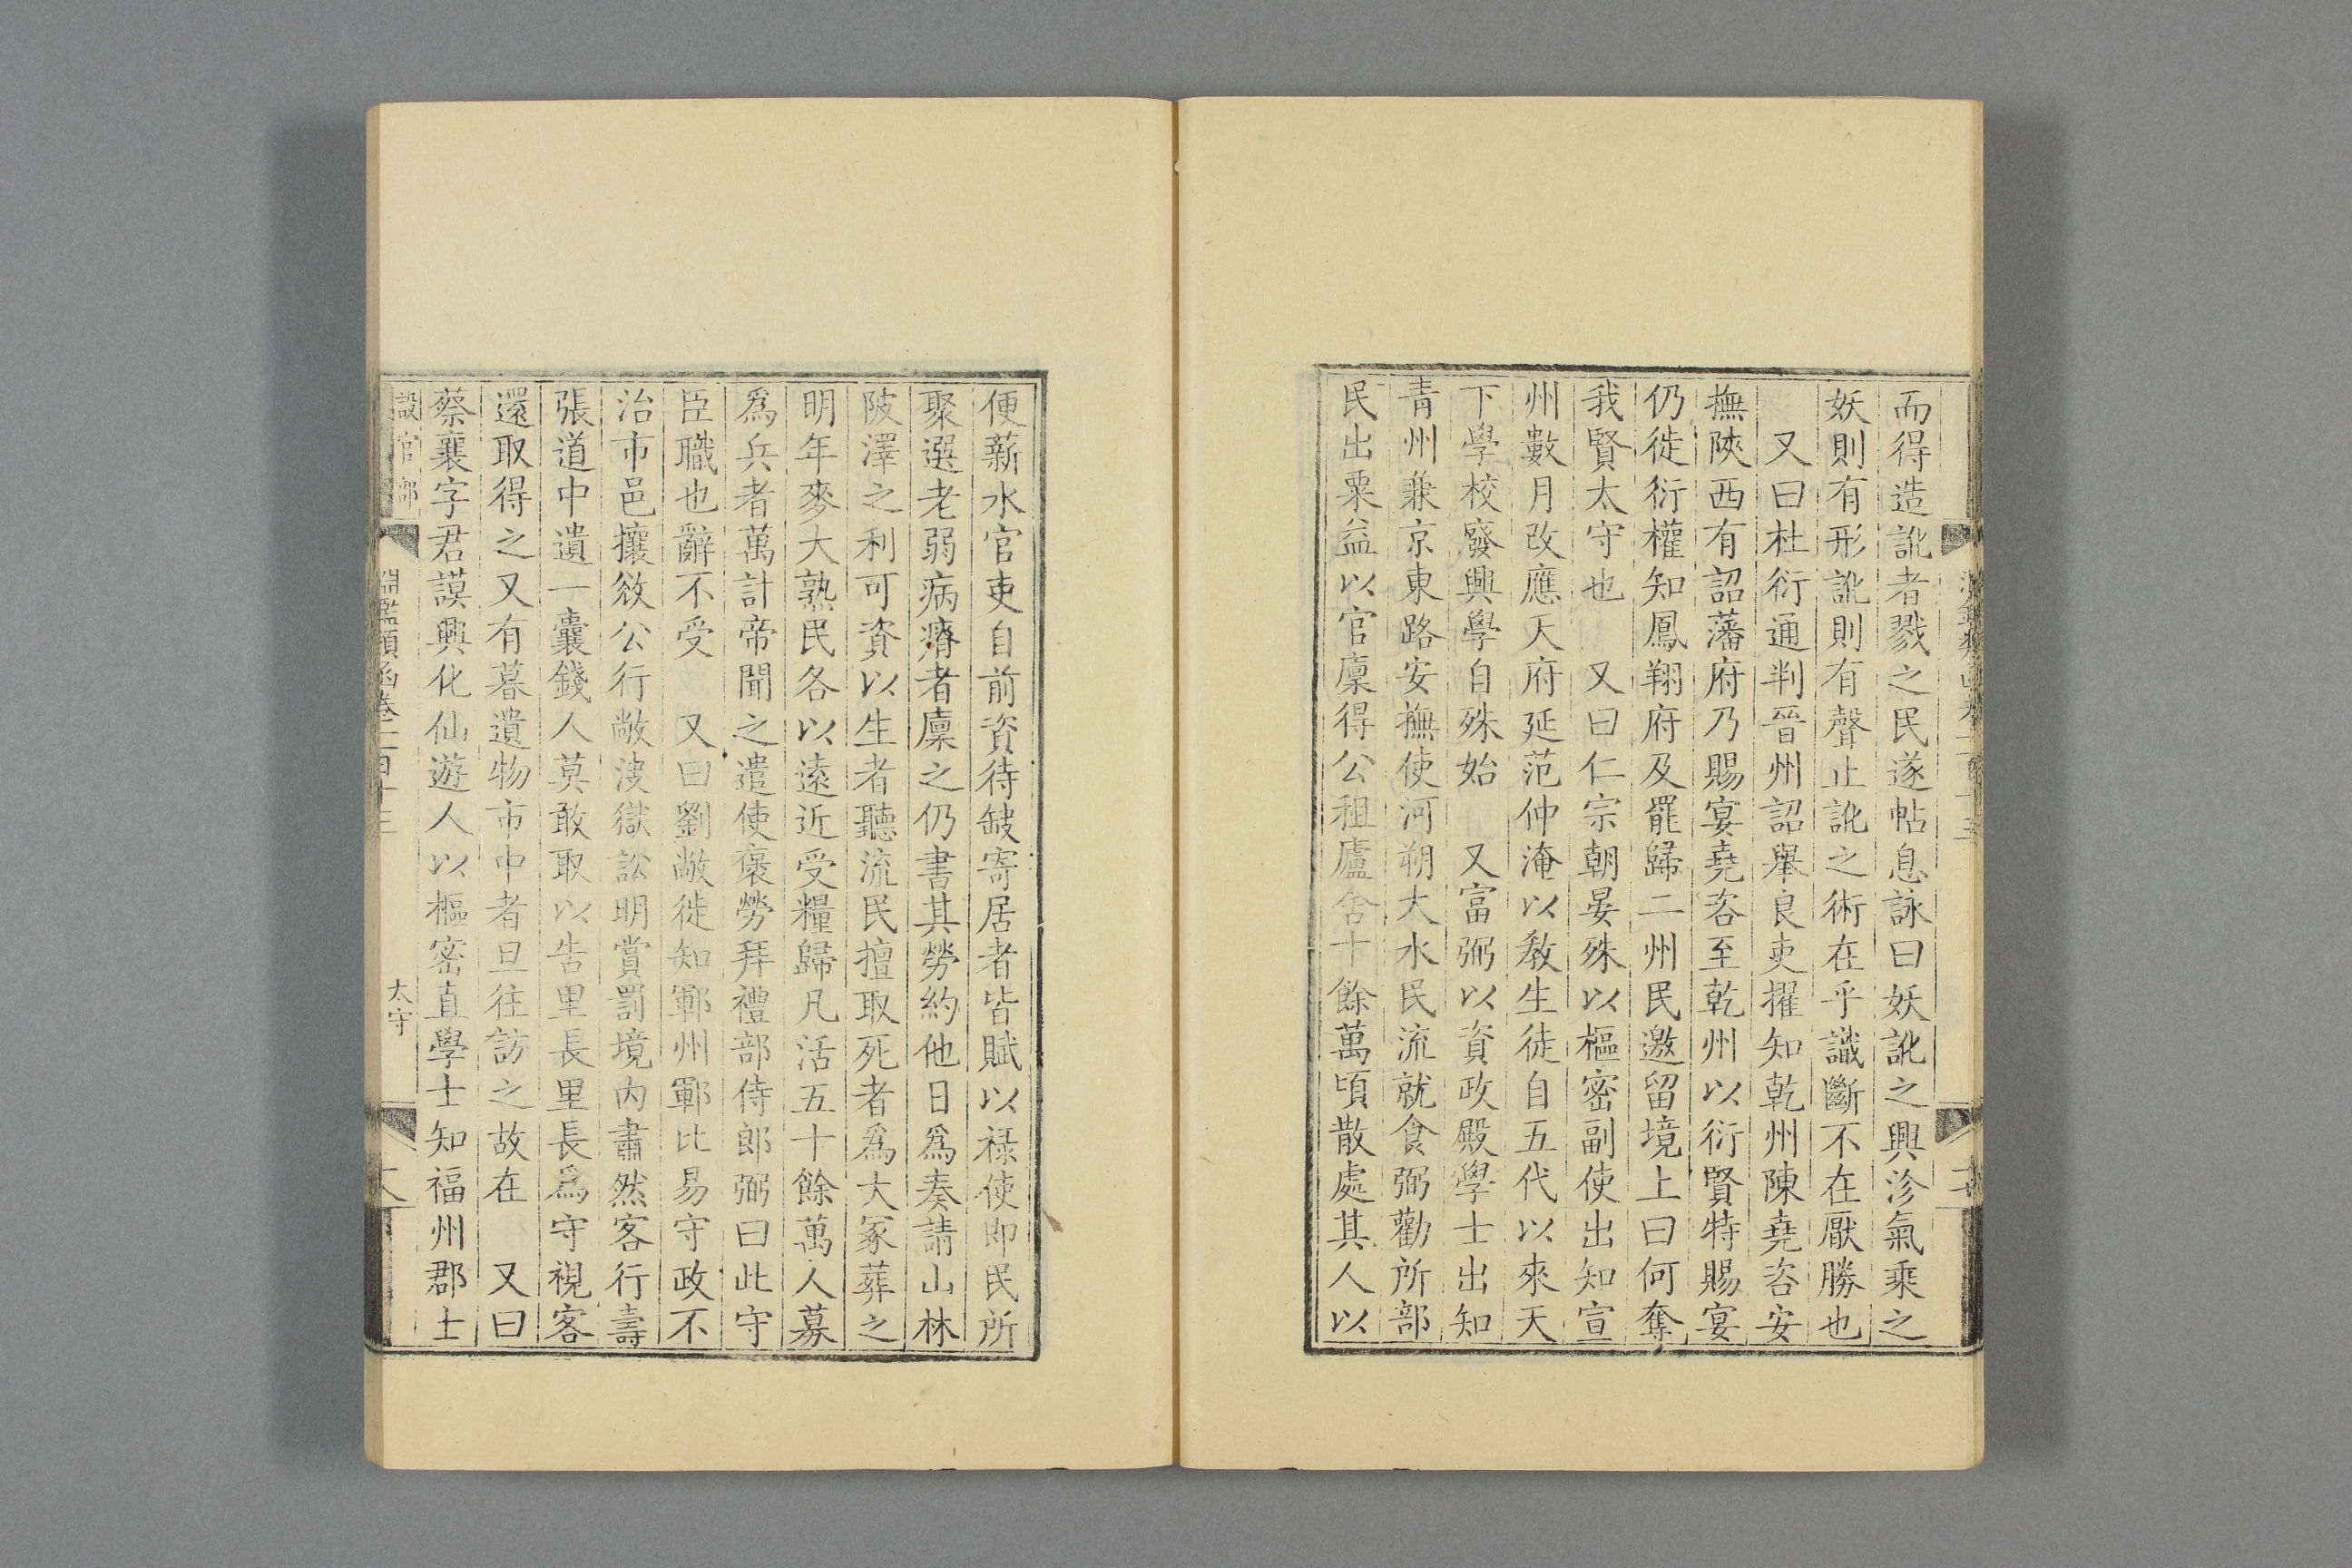 而得造訛者戮之民遂帖息詠曰妖訛之興沴氣乘之
妖則有形訛則有聲止訛之術在乎識斷不在厭勝也
又曰杜衍通判晉州詔舉良吏擢知乾州陳堯咨安
撫陝西有詔藩府乃賜宴堯咨至乾州以衍賢特賜宴
仍徙衍權知鳳翔府及罷歸二州民邀留境上曰何奪
我賢太守也 又曰仁宗朝晏殊以樞密副使出知宣
州數月改應天府延范仲淹以敎生徒自五代以來天
下學校廢興學自殊始 又富弼以資政殿學士出知
青州兼京東路安撫使河朔大水民流就食弼勸所部
民出粟益以官廩得公私廬舍十餘萬區散處其人以
便薪水官吏自前資待缺寄居者皆賦以祿使即民所
聚選老弱病瘠者廩之仍書其勞約他日爲奏請山林
陂澤之利可資以生者聽流民擅取死者爲大冢葬之
明年麥大熟民各以遠近受糧歸凡活五十餘萬人募
爲兵者萬計帝聞之遣使褒勞拜禮部侍郎弼曰此守
臣職也辭不受 又曰劉敞徙知鄆州鄆比易守政不
治市邑攘敓公行敞決獄訟明賞罰境內肅然客行壽
張道中遺一囊錢人莫敢取以告里長里長爲守視客
還取得之又有暮遺物市中者旦往訪之故在 又曰
蔡襄字君謨興化仙遊人以樞密直學士知福州郡士
設官部
淵鑑類函卷一百十三
太守